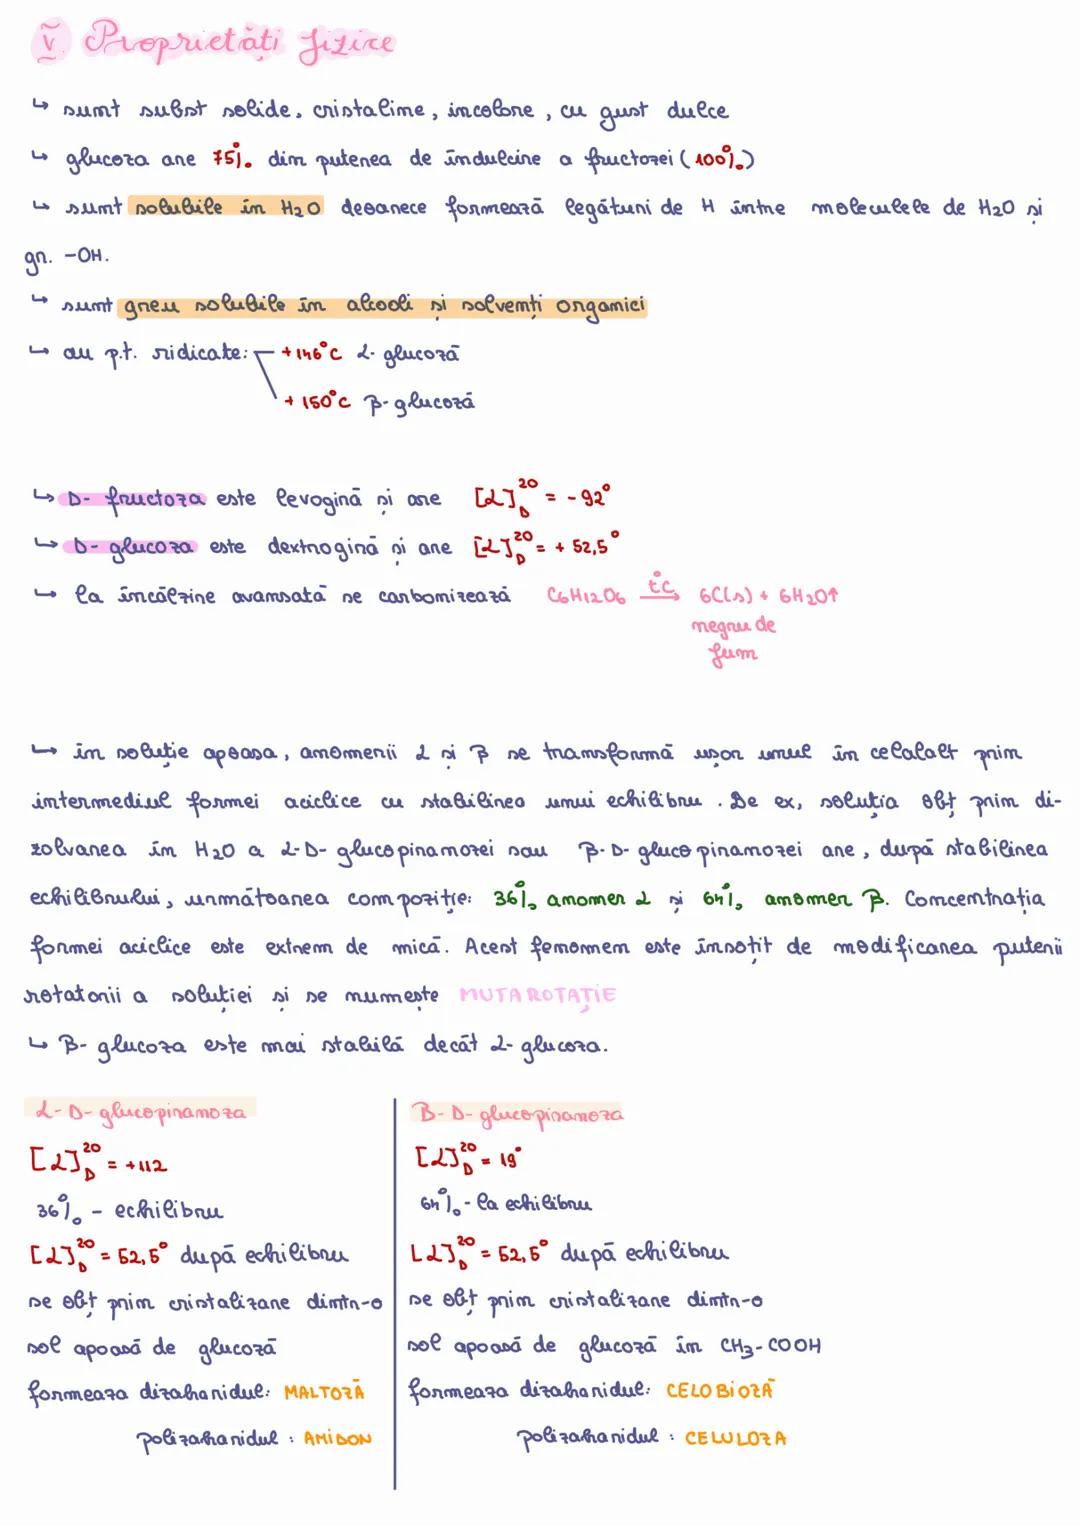 V Proprietăți fizice
↳ sunt subst solide, cristaline, incolore, cu gust dulce
↳ glucoza are 75% din puterea de îndulcire a fructozei (100%)
↳ sunt solubile în H2O deoarece formează legături de H între moleculele de H2O și
gr. -OH.
↳ sunt greu solubile în alcooli și solvenți organici
↳ au p.t. ridicate: +146°C α-glucoză
+150°C β-glucoză
↳ D-fructoza este levogiră și are [α]D20 = -92°
↳ D-glucoza este dextrogiră și are [α]D20 = +52,5°
↳ la încălzire avansată se carbonizează C6H12O6 t°C→ 6C(s) + 6H2O↑
negru de
fum
↳ în soluție apoasa, anomerii α și β se transformă ușor unul în celalalt prin
intermediul formei aciclice cu stabilirea unui echilibru. De ex, soluția obț prin di-
zolvarea în H2O a α-D-glucopiranozei sau β-D-glucopiranozei are, după stabilirea
echilibrului, următoarea compoziție: 36% anomer α și 64% anomer β. Concentrația
formei aciclice este extrem de mică. Acest fenomen este însoțit de modificarea puterii
rotatorii a soluției și se numește MUTAROTAȚIE
↳ β-glucoza este mai stabilă decât α-glucoza.
α-D-glucopiranoza
[α]D20 = +112
36% - echilibru
[α]D20 = 52,5° după echilibru
se obț prin cristalizare dintr-o
sol apoasă de glucoză
formeaza dizaharidul: MALTOZĂ
polizaharidul: AMIDON
β-D-glucopiranoza
[α]D20 = 19°
64% - la echilibru
[α]D20 = 52,5° după echilibru
se obț prin cristalizare dintr-o
sol apoasă de glucoză în CH3-COOH
formeaza dizaharidul: CELOBIOZĂ
polizaharidul: CELULOZA